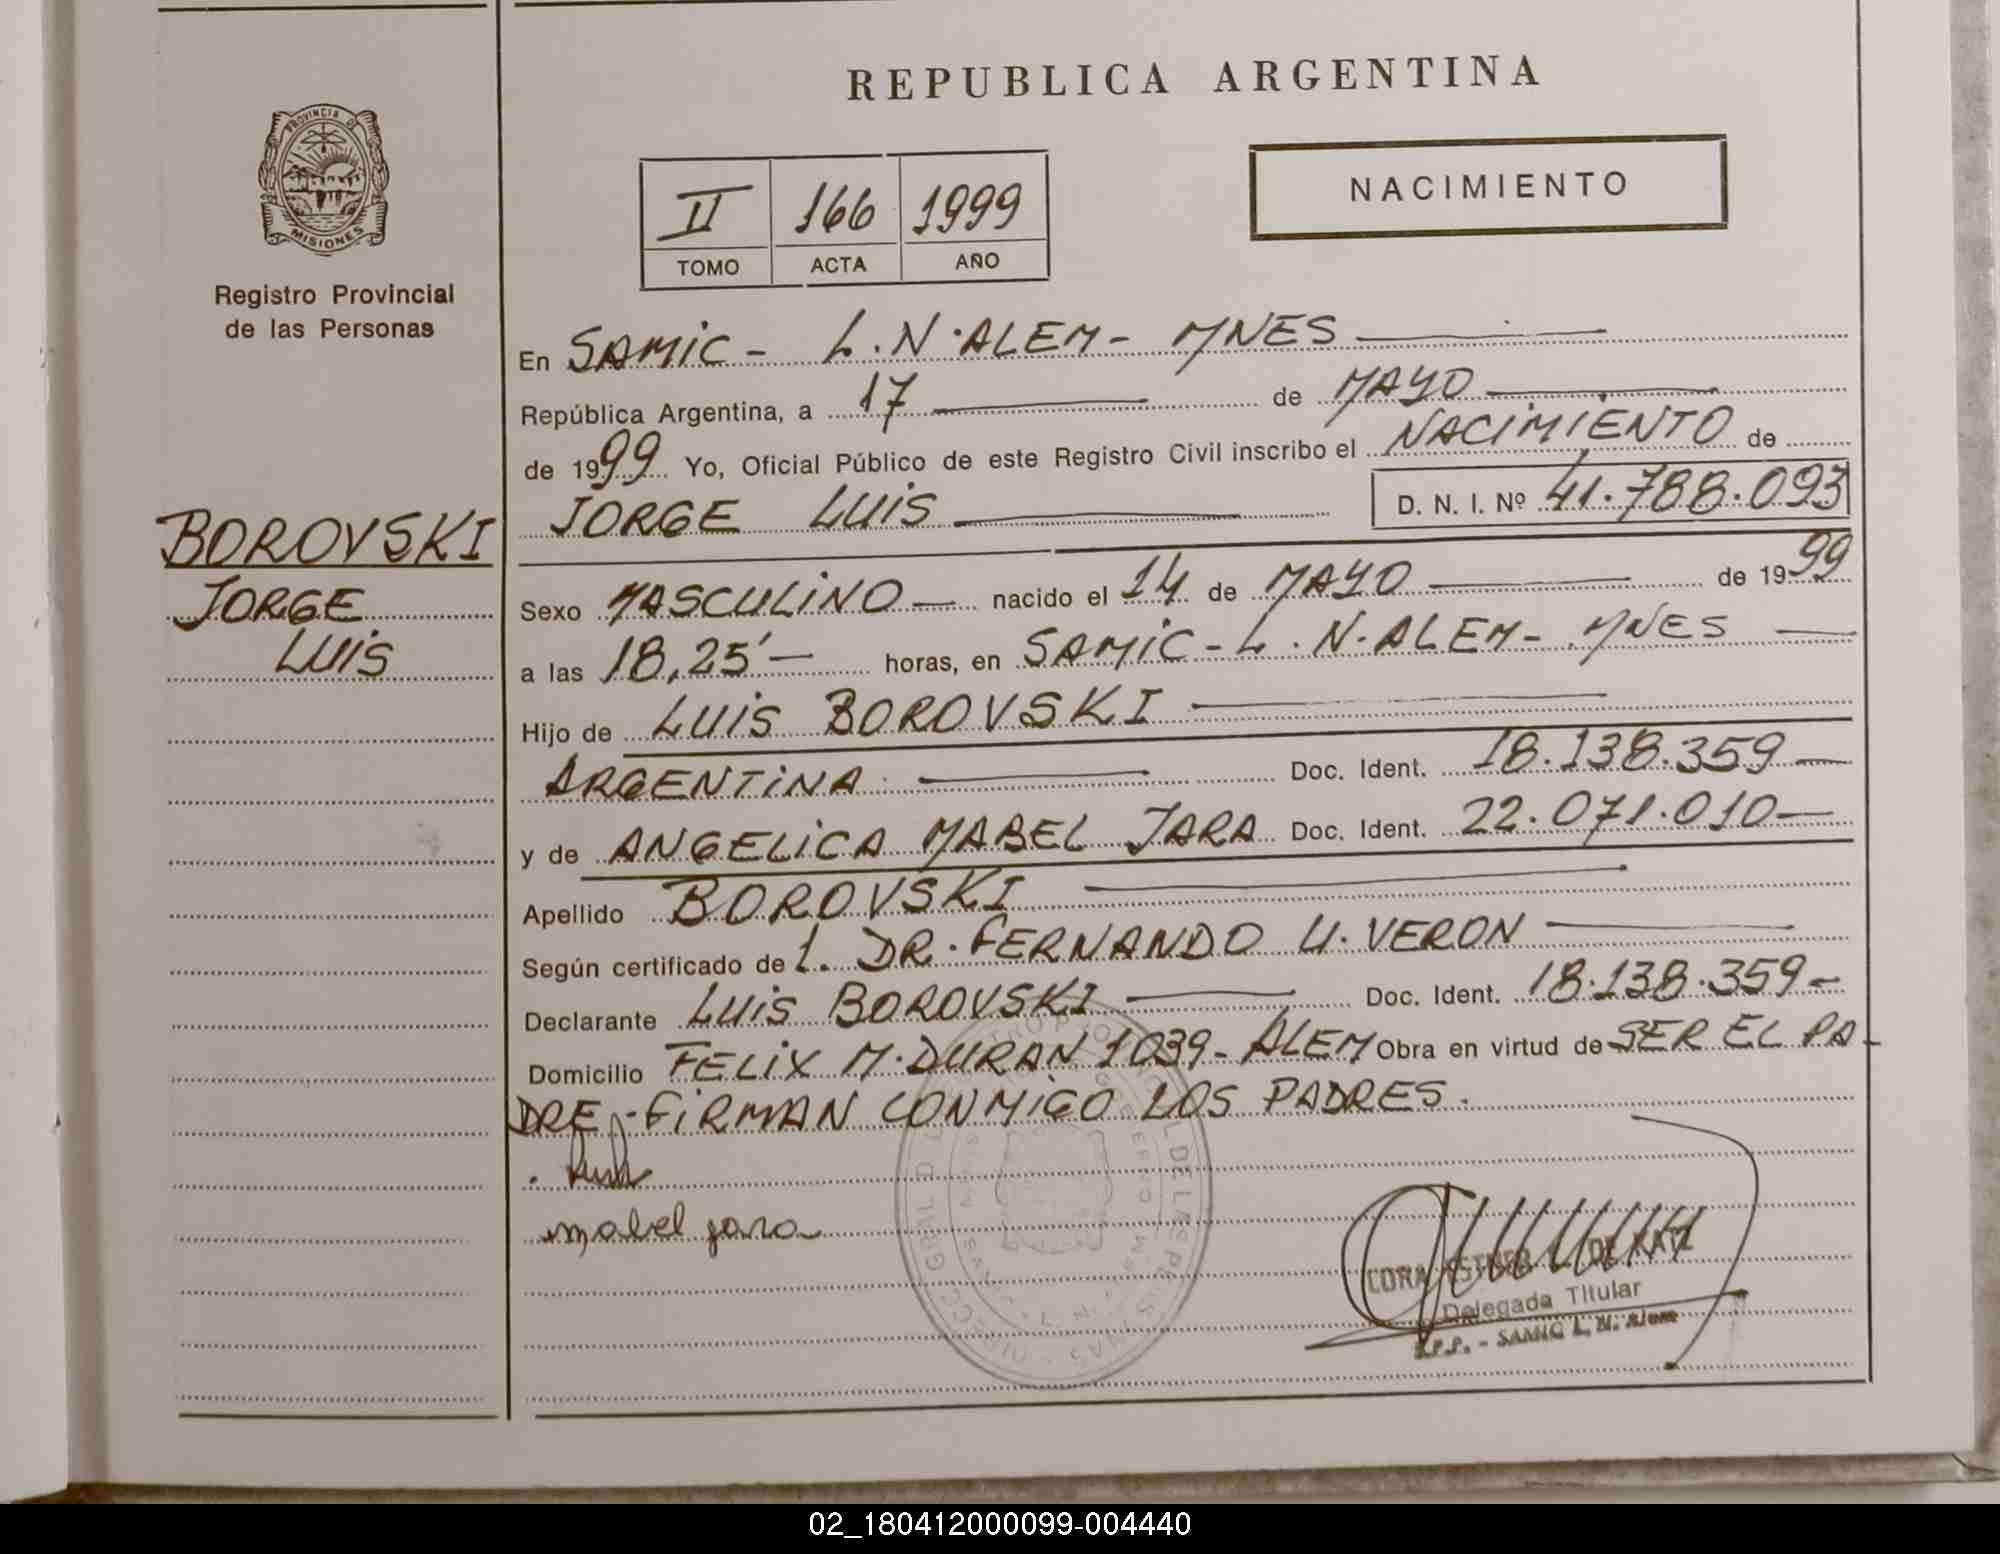 REPUBLICA ARGENTINA
PROVINCIA DE
MISIONES
Registro Provincial
de las Personas
II 166 1999
TOMO ACTA AÑO
NACIMIENTO
BOROVSKI
JORGE
LUIS
En SAMIC - L.N.ALEM - MNES
República Argentina, a 17 de MAYO
de 1999 Yo, Oficial Público de este Registro Civil inscribo el NACIMIENTO de
JORGE LUIS D. N. I. Nº 41.788.093
Sexo MASCULINO nacido el 14 de MAYO de 1999
a las 18,25' horas, en SAMIC - L.N.ALEM - MNES
Hijo de LUIS BOROVSKI
ARGENTINA Doc. Ident. 18.138.359
y de ANGELICA MABEL JARA Doc. Ident. 22.071.010
Apellido BOROVSKI
Según certificado de 1. DR. FERNANDO U. VERON
Declarante LUIS BOROVSKI Doc. Ident. 18.138.359
Domicilio FELIX M. DURAN 1039 - ALEM Obra en virtud de SER EL PA-
DRE - FIRMAN CONMIGO LOS PADRES.
mabel jara
DE KATZ
Delegada Titular
R.P.P. - SAMIC L. N. Alem
02_180412000099-004440